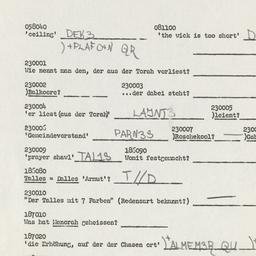 058040 081100
'ceiling' DEK3 'the wick is too short' D
)+PLAFON QR
230001
Wie nennt man den, der aus der Torah vorliest?
230002 230003
)Balkore? ...der dabei steht?
230004 230005
'er liest (aus der Torah)' LAJNTS )leient?
230006
'Gemeindevorstand' PARN3S 230007 )Roschekool? 230
230009 185090
'prayer shawl' TAL1S Womit festgemacht?
185080
Talles = Dalles 'Armut'? T//D
230010
"Der Talles mit 7 Farben" (Redensart bekannt?)
187010
Was hat Menorah geheissen?
187020
'die Erhöhung, auf der der Chasen ort' )(ALMEM3R QU